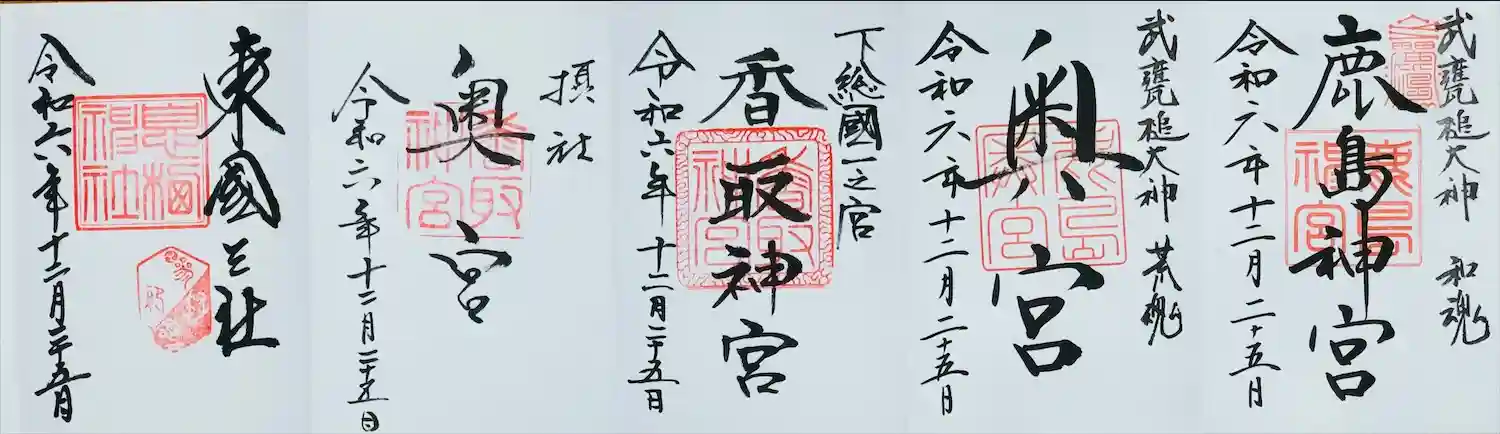 武甕槌大神 和魂
鹿島神宮
鹿島神宮
令和六年十二月二十五日
武甕槌大神 荒魂
奥宮
鹿島奥宮
令和六年十二月二十五日
下総國一之宮
香取神宮
香取神宮
令和六年十二月二十五日
摂社
奥宮
香取神宮
令和六年十二月二十五日
東國三社
息栖神社
令和六年十二月二十五日